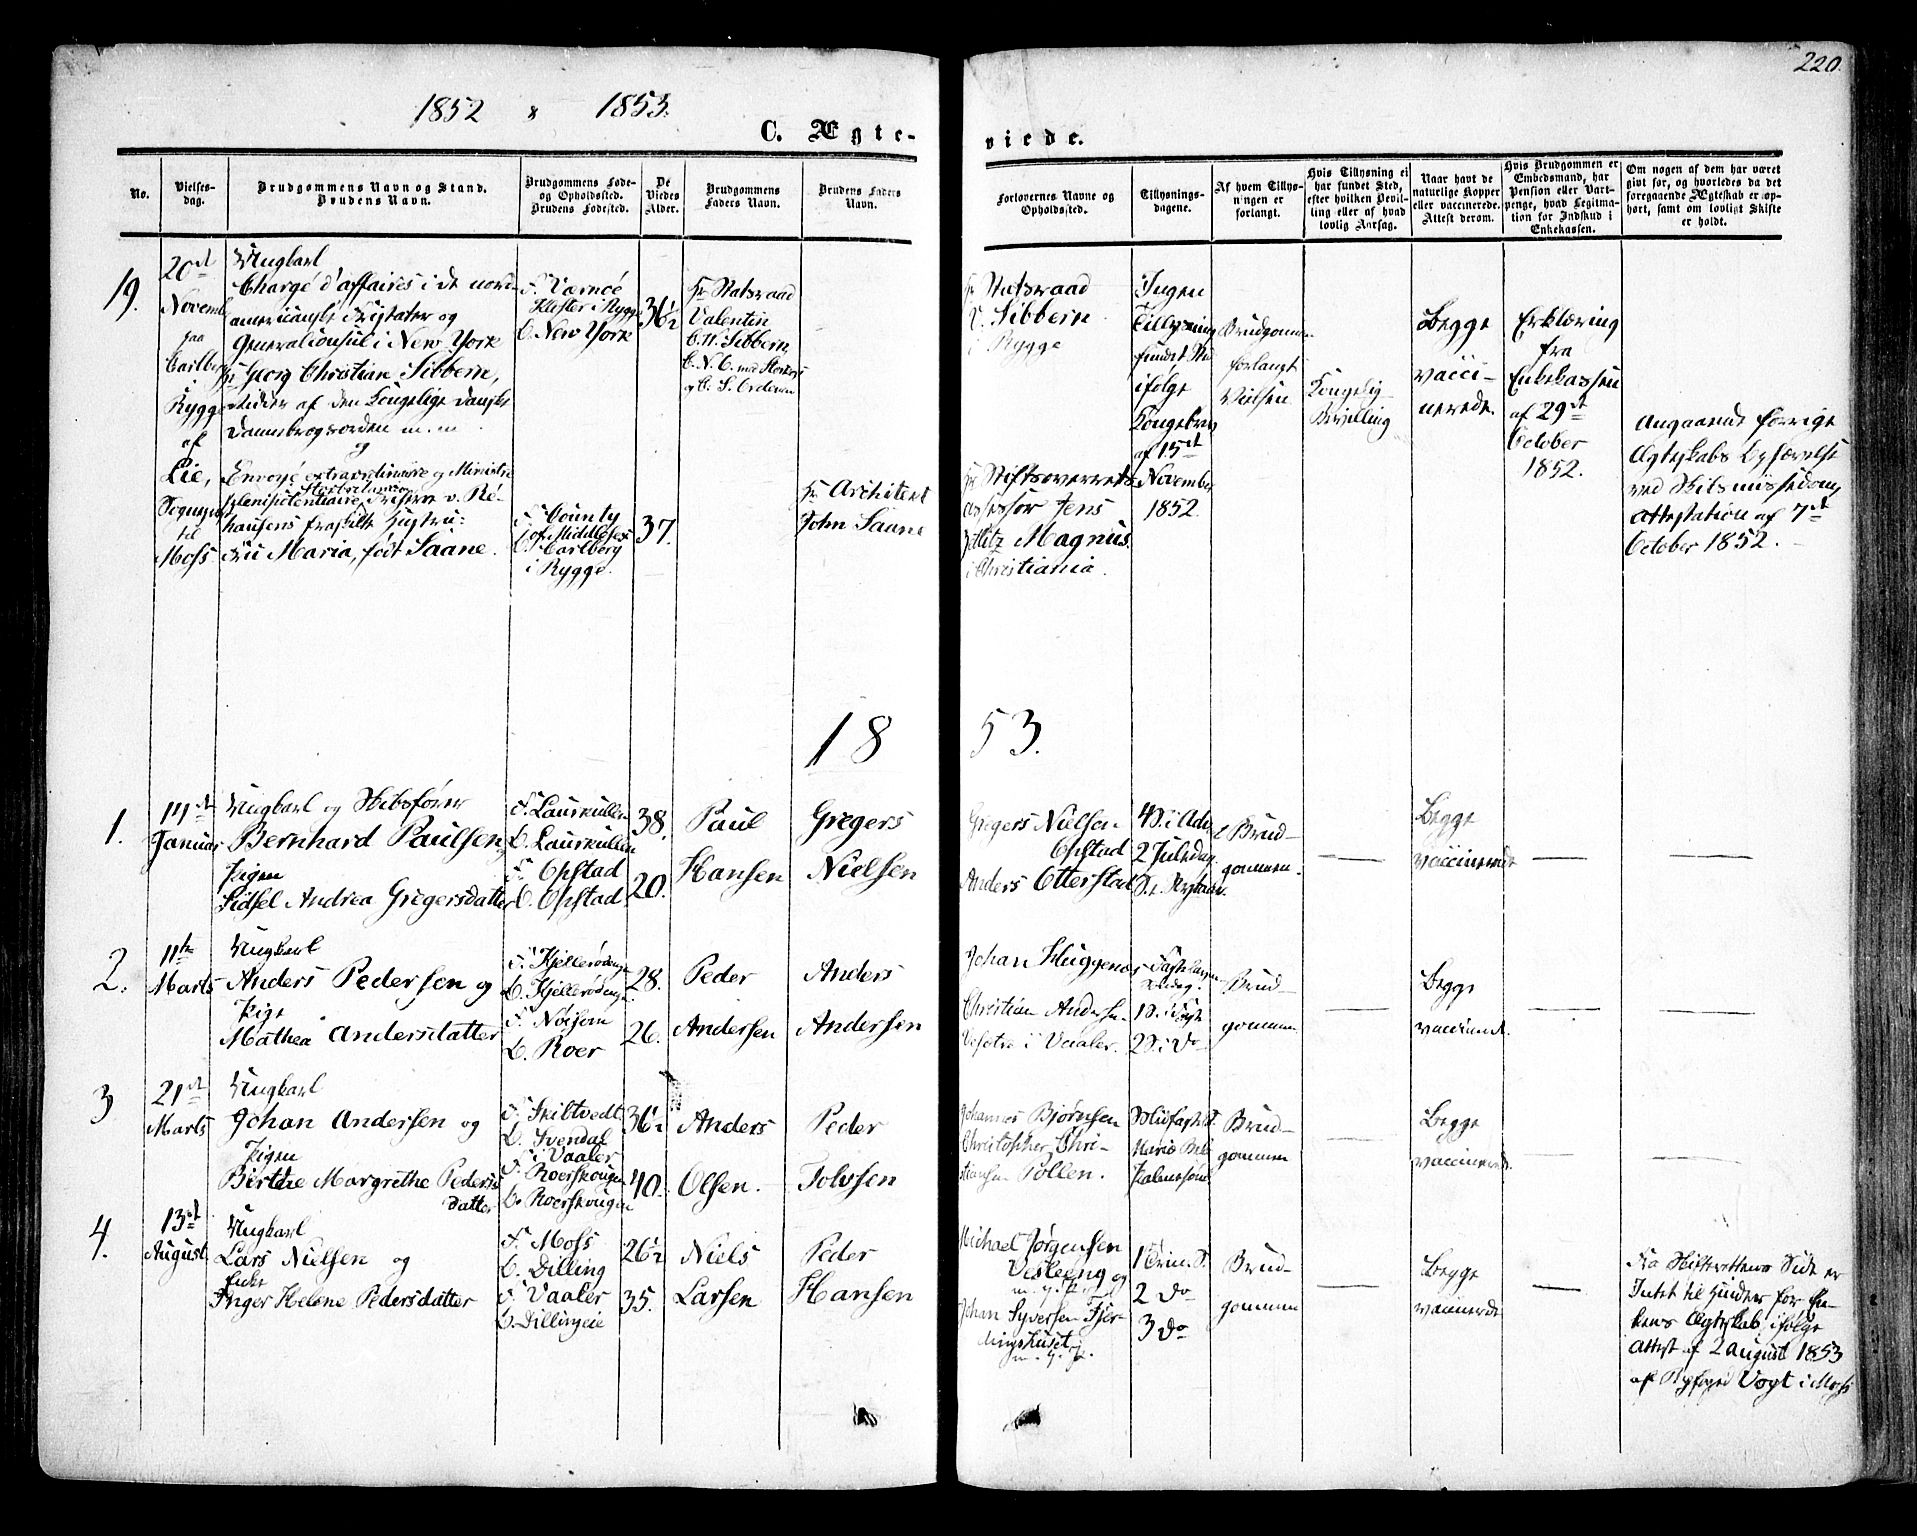 220.
1852 & 1853.
C. Ægte-
viede.
No.
Vielses-
dag.
Brudgommens Navn og Stand.
Brudens Navn.
Brudgommens Føde-
og Opholdssted.
Brudens Fødested.
De
Viedes
Alder.
Brudgommens
Faders Navn.
Brudens Faders
Navn.
Forlovernes Navne og
Opholdssted.
Tillysnings-
dagene.
Af hvem Tillys-
ningen er
forlangt.
Hvis Tillysning ei
har fundet Sted,
efter hvilken Bevil-
ling eller af hvad
lovlig Aarsag.
Naar havt de
naturlige Kopper
eller vaccinerede.
Attest derom.
Hvis Brudgommen er
Embedsmand, har
Pension eller Vart-
penge, hvad Legitima-
tion for Indskud i
Enkekassen.
Om nogen af dem har været
givt før, og hvorledes da det
foregaaende Ægteskab er op-
hørt, samt om lovligt Skifte
er holdt.
19.
20de
Novemb
paa
Carlberg
i
Rygge
af
Lie,
Sognepræst
til
Moss
Ungkarl
Chargé d'affaires i de nord-
amerikanske Fristater og
Generalconsul i New York
Hr Georg Christian Sibbern,
Ridder af den Kongelige danske
Dannebrogsorden m. m.
og
Envoyé extraordinaire og Ministre
plenipotentiaire Friherre v. Re-
hausens fraskilte Hustru
Fru Maria, født Saane.
F. Værnøe
Kloster i Rygge
O. New York
F. County
of Middlesex
O. Carlberg
i Rygge.
36½
37.
Hr Statsraad
Valentin
C. W. Sibbern,
C. N. O. med Storkors
og C. S. Ordenen
Hr Architekt
John Saane
Hr Statsraad
V. Sibbern
i Rygge
Hr Stiftsoverrets-
assessor Jens
Zetlitz Magnus.
i Christiania.
Ingen
Tillysning
fundet Sted
ifølge
Kongebrev
af 15de
November
1852.
Brudgommen
forlangt
Vielsen
Kongelig
Bevilling
Begge
vacci-
nerede.
Erklæring
fra
Enkekassen
af 29de
October
1852.
Angaaende forrige
Ægteskabs Ophævelse
ved Skilsmissedom,
Attestation af 7de
October 1852.
1853.
1.
14de
Januar
Ungkarl og Skibsfører
Bernhard Paulsen og
Pigen
Sidsel Andrea Gregersdatter
F. Laurkullen
O. Laurkullen
F. Opstad
O. Opstad
38.
20.
Paul
Hansen
Gregers
Nielsen
Gregers Nielsen
Opstad
Anders Otterstad
4 S. i Adv.
2 Juledag
S. e. Nytaar.
Brud-
gommen.
Begge
vaccinerede
2.
11te
Marts
Ungkarl
Anders Pedersen og
Pige
Mathea Andersdatter
F. Kjellerødeng
O. Kjellerødeng
F. Nøisom
O. Roer
28.
26.
Peder
Andersen
Anders
Andersen
Johan Huggenæs
Christian Andersen
Vestre i Vaaler.
1 S. i Faste
2 S. i Do
Brud-
gommen
Begge
vaccinerede.
3
21de
Marts
Ungkarl
Johan Andersen og
Pigen
Birthe Margrethe Peders-
datter
F. Skiltvedt
O. Svendal
i Vaaler
F. Roerskougen
O. Roerskougen
36½
40.
Anders
Olsen.
Peder
Tolvsen
Johannes Bjørnsen
Christopher Chri-
stiansen Pollen.
Midfaste S.
Mariæ Beb.
Palmesøn.
Brud-
gommen
Begge
vaccinerede.
4.
13de
August
Ungkarl
Lars Nielsen og
Enke
Inger Helene Pedersdatter
F. Moss
O. Dilling
F. Vaaler
O. Dillingeie
26½
35.
Niels
Larsen
Peder
Hansen
Michael Jørgensen
Vesleeng og
m. g. P.
Johan Syversen Fjer-
dingshuset
m. g. P.
1 Trin. S.
2 Do
3 Do
Brud-
gommen
Begge
vaccinerede
Fra Skifterettens Side er
Intet til Hinder for En-
kens Ægteskab, ifølge
Attest af 2 August 1853
af Byfoged Vogt i Moss